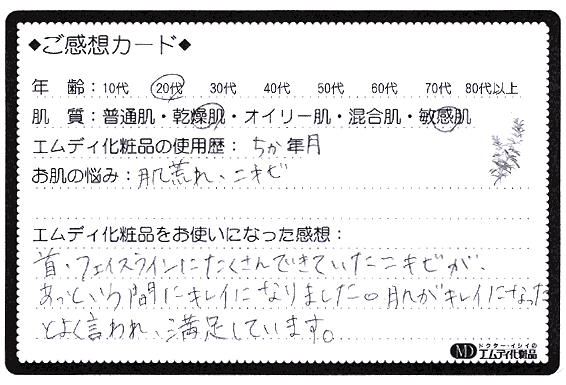 ◆ご感想カード◆
年 齢： 10代 20代 30代 40代 50代 60代 70代 80代以上
肌 質：普通肌・乾燥肌・オイリー肌・混合肌・敏感肌
エムディ化粧品の使用歴： 5ヶ月
お肌の悩み：肌荒れ、ニキビ
エムディ化粧品をお使いになった感想：
首、フェイスラインにたくさんできていたニキビが、
あっという間にキレイになりました。肌がキレイになった
とよく言われ、満足しています。
MD ドクター・イシイの
エムディ化粧品